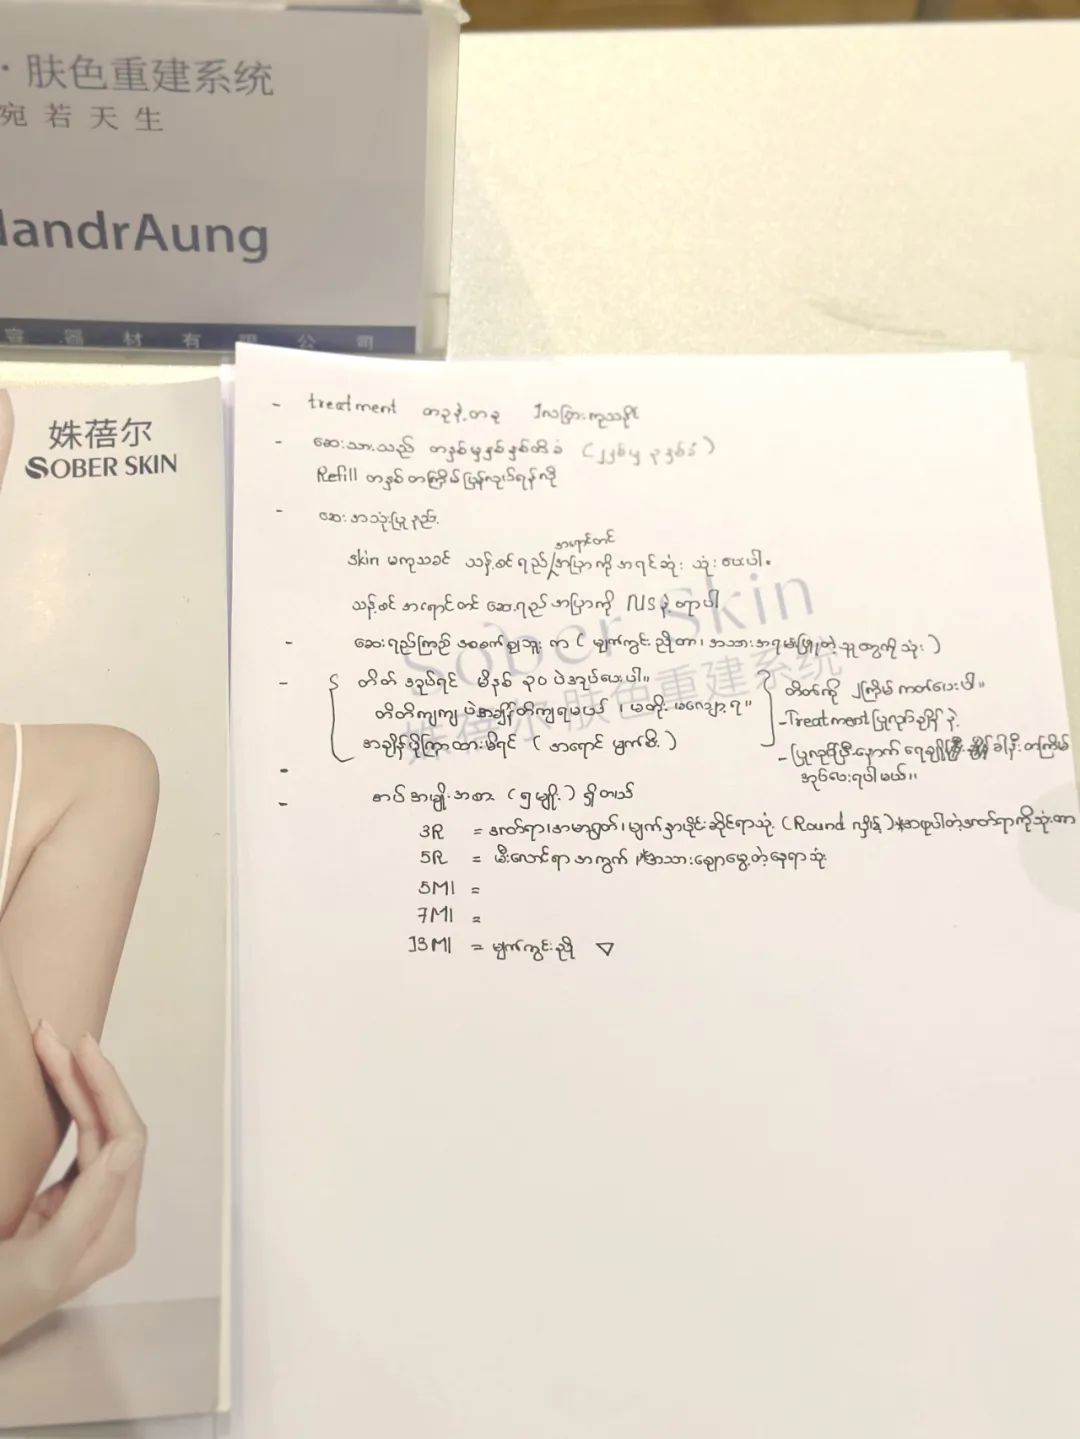 · 肤色重建系统
宛若天生
landrAung
容器材有限公司
姝蓓尔
SOBER SKIN
- treatment တခုနဲ့တခု 1လခြားကုသနိုင်
- ဆေးသားသည် တနှစ်မှနှစ်နှစ်ထိခံ (၂နှစ်မှ ၃နှစ်ခံ)
Refill တနှစ်တကြိမ်ပြန်လုပ်ရန်လို
- ဆေးအသုံးပြုနည်း
အရောင်တင်
skin မကုသခင် သန့်စင်ရည်/အပြာကို အရင်ဆုံး သုံးပေးပါ။
သန့်စင် အရောင်တင် ဆေးရည် အပြာကို NS နဲ့
- ဆေးရည်ကြည် အစက်ချဘူး က (မျက်ကွင်းညိုတာ၊ အသားအရမ်းဖြူတဲ့သူတွေကိုသုံး)
- တိတ် အုပ်ရင် မိနစ် ၃၀ ပဲအုပ်ပေးပါ။
တိတိကျကျ ပဲအချိန်တိကျရမယ်၊ မတိုး မလျော့ရ။
အချိန်ပိုကြာထားမိရင် (အရောင် မျက်စိ)
တိတ်ကို ၂ကြိမ် ကတ်ပေးပါ။
- Treatment ပြုလုပ်ချိန် နဲ့
- ပြုလုပ်ပြီးနောက် ရေချိုးပြီး ခါနီး တကြိမ်
အုပ်ပေးရပါမယ်။
-
- အပ်အမျိုးအစား (၅မျိုး) ရှိတယ်
3R = အတ်ရာ၊ အမာရွတ်၊ မျက်နှာပိုင်းဆိုင်ရာသုံး (Round လှိမ့်) *အစုပါတဲ့အတ်ရာကိုသုံးတာ
5R = မီးလောင်ရာ အတွက် *အသားချောမွေ့တဲ့နေရာသုံး
5M1 =
7M1 =
13M1 = မျက်ကွင်းညို ▽
Sober Skin
姝蓓尔·肤色重建系统